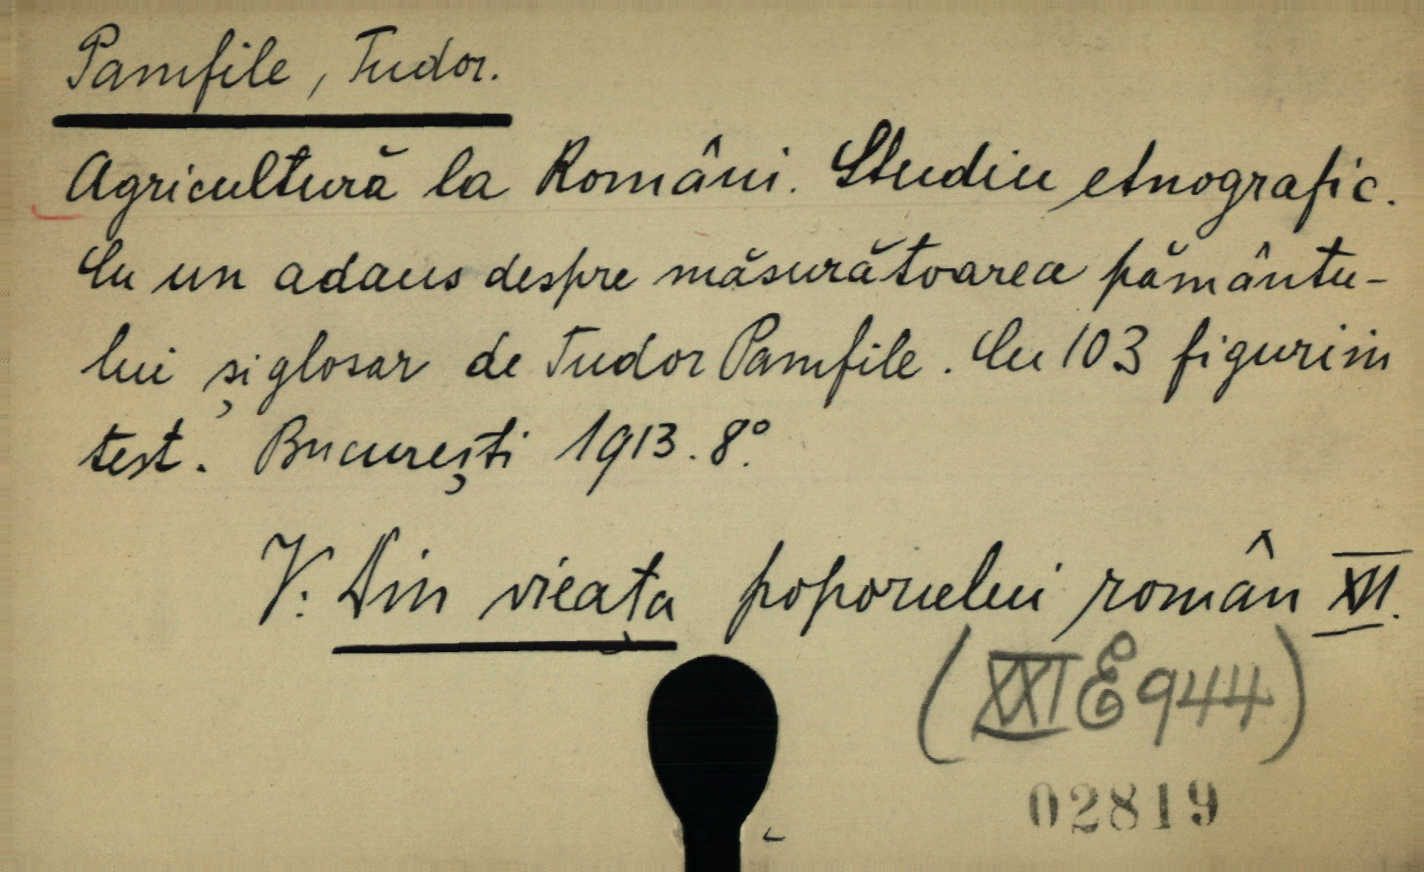 Pamfile, Tudor.
Agricultură la Români. Studiu etnografic.
Cu un adaus despre măsurătoarea pământu-
lui și glosar de Tudor Pamfile. Cu 103 figuri in
test. București 1913. 8°.
V: Din vieața poporului român XVI.
(XXI E 944)
02819